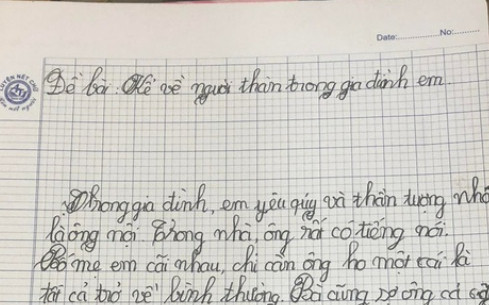 Date: No:
LUYỆN NÉT CHỮ
Đề bài: Kể về người thân trong gia đình em
Trong gia đình, em yêu quý và thần tượng nhớ
là ông nội. Trong nhà, ông rất có tiếng nói.
Bố mẹ em cãi nhau, chỉ cần ông ho một cái là
tất cả trở về bình thường. Bà cũng sợ ông cả